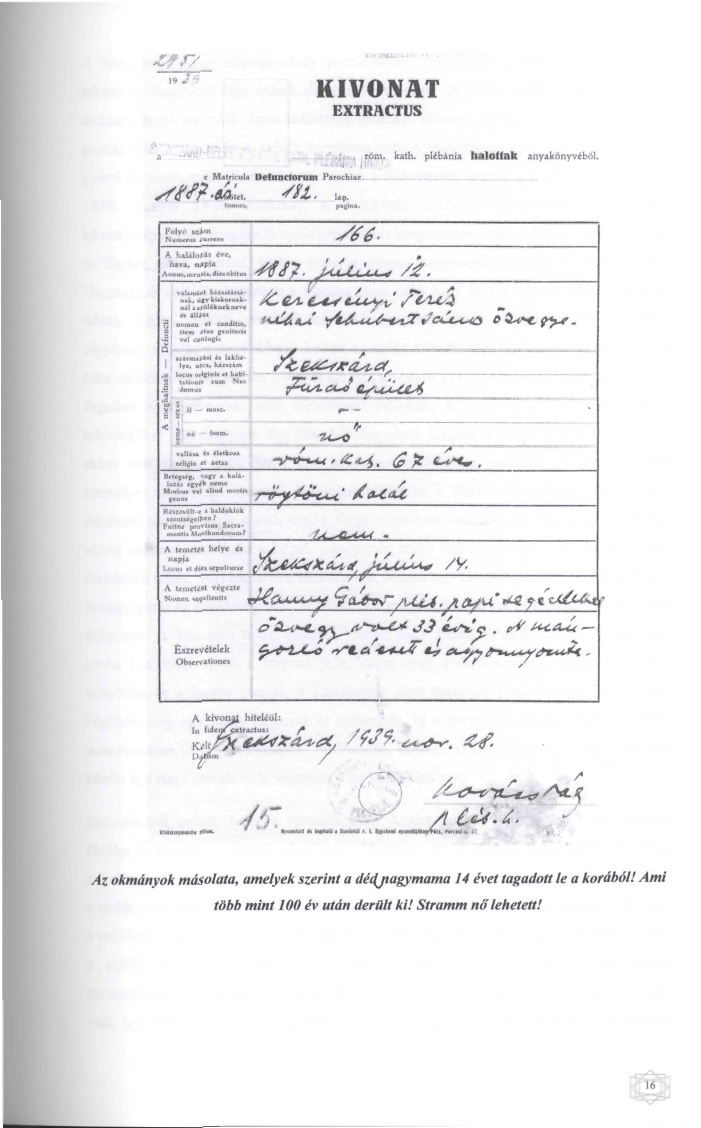 2951
19 39
KIVONAT
EXTRACTUS
a róm. kath. plébánia halottak anyakönyvéből.
e Matricula Defunctorum Parochiae
1887. kötet. 182. lap.
tomus. pagina.
Folyó szám
Numerus currens
166.
A halálozás éve,
hava, napja
Annus, mensis, dies obitus
1887. július 12.
A meghaltnak — Defuncti
valamint házastársá-
nak, úgy kiskorunak-
nál a szülőknek neve
és állása
nomen et conditio,
item eius genitoris
vel coniugis
Kerecsényi Teréz
néhai Schubert János özvegye.
származási és lakhe-
lye, utca, házszám
locus originis et habi-
tationis cum Nro
domus
Szekszárd,
Fürdőépület
neme — sexus
fi — masc.
—
nő — foem.
nő
vallása és életkora
religio et aetas
róm. kat. 67 éves.
Betegség, vagy a halá-
lozás egyéb neme
Morbus vel aliud mortis
genus
rögtöni halál
Részesült-e a haldoklók
szentségeiben?
Fuitne provisus Sacra-
mentis Moribundorum?
nem.
A temetés helye és
napja
Locus et dies sepulturae
Szekszárd, július 14.
A temetést végezte
Nomen sepelientis
Hanny Gábor pléb. papi segédlettel
Észrevételek
Observationes
özvegy volt 33 évig. A mán-
gorló reáesett és agyonnyomta.
A kivonat hiteléül:
In fidem extractus:
Kelt Szekszárd, 1939. nov. 28.
Datum
Kovács Pág
pléb. h.
15.
Kiadmányozás díjtan.
Nyomatott és kapható a Dunántúl r. t. Egyetemi nyomdájában Pécs, Perczel u.
Az okmányok másolata, amelyek szerint a déd nagymama 14 évet tagadott le a korából! Ami
több mint 100 év után derült ki! Stramm nő lehetett!
16